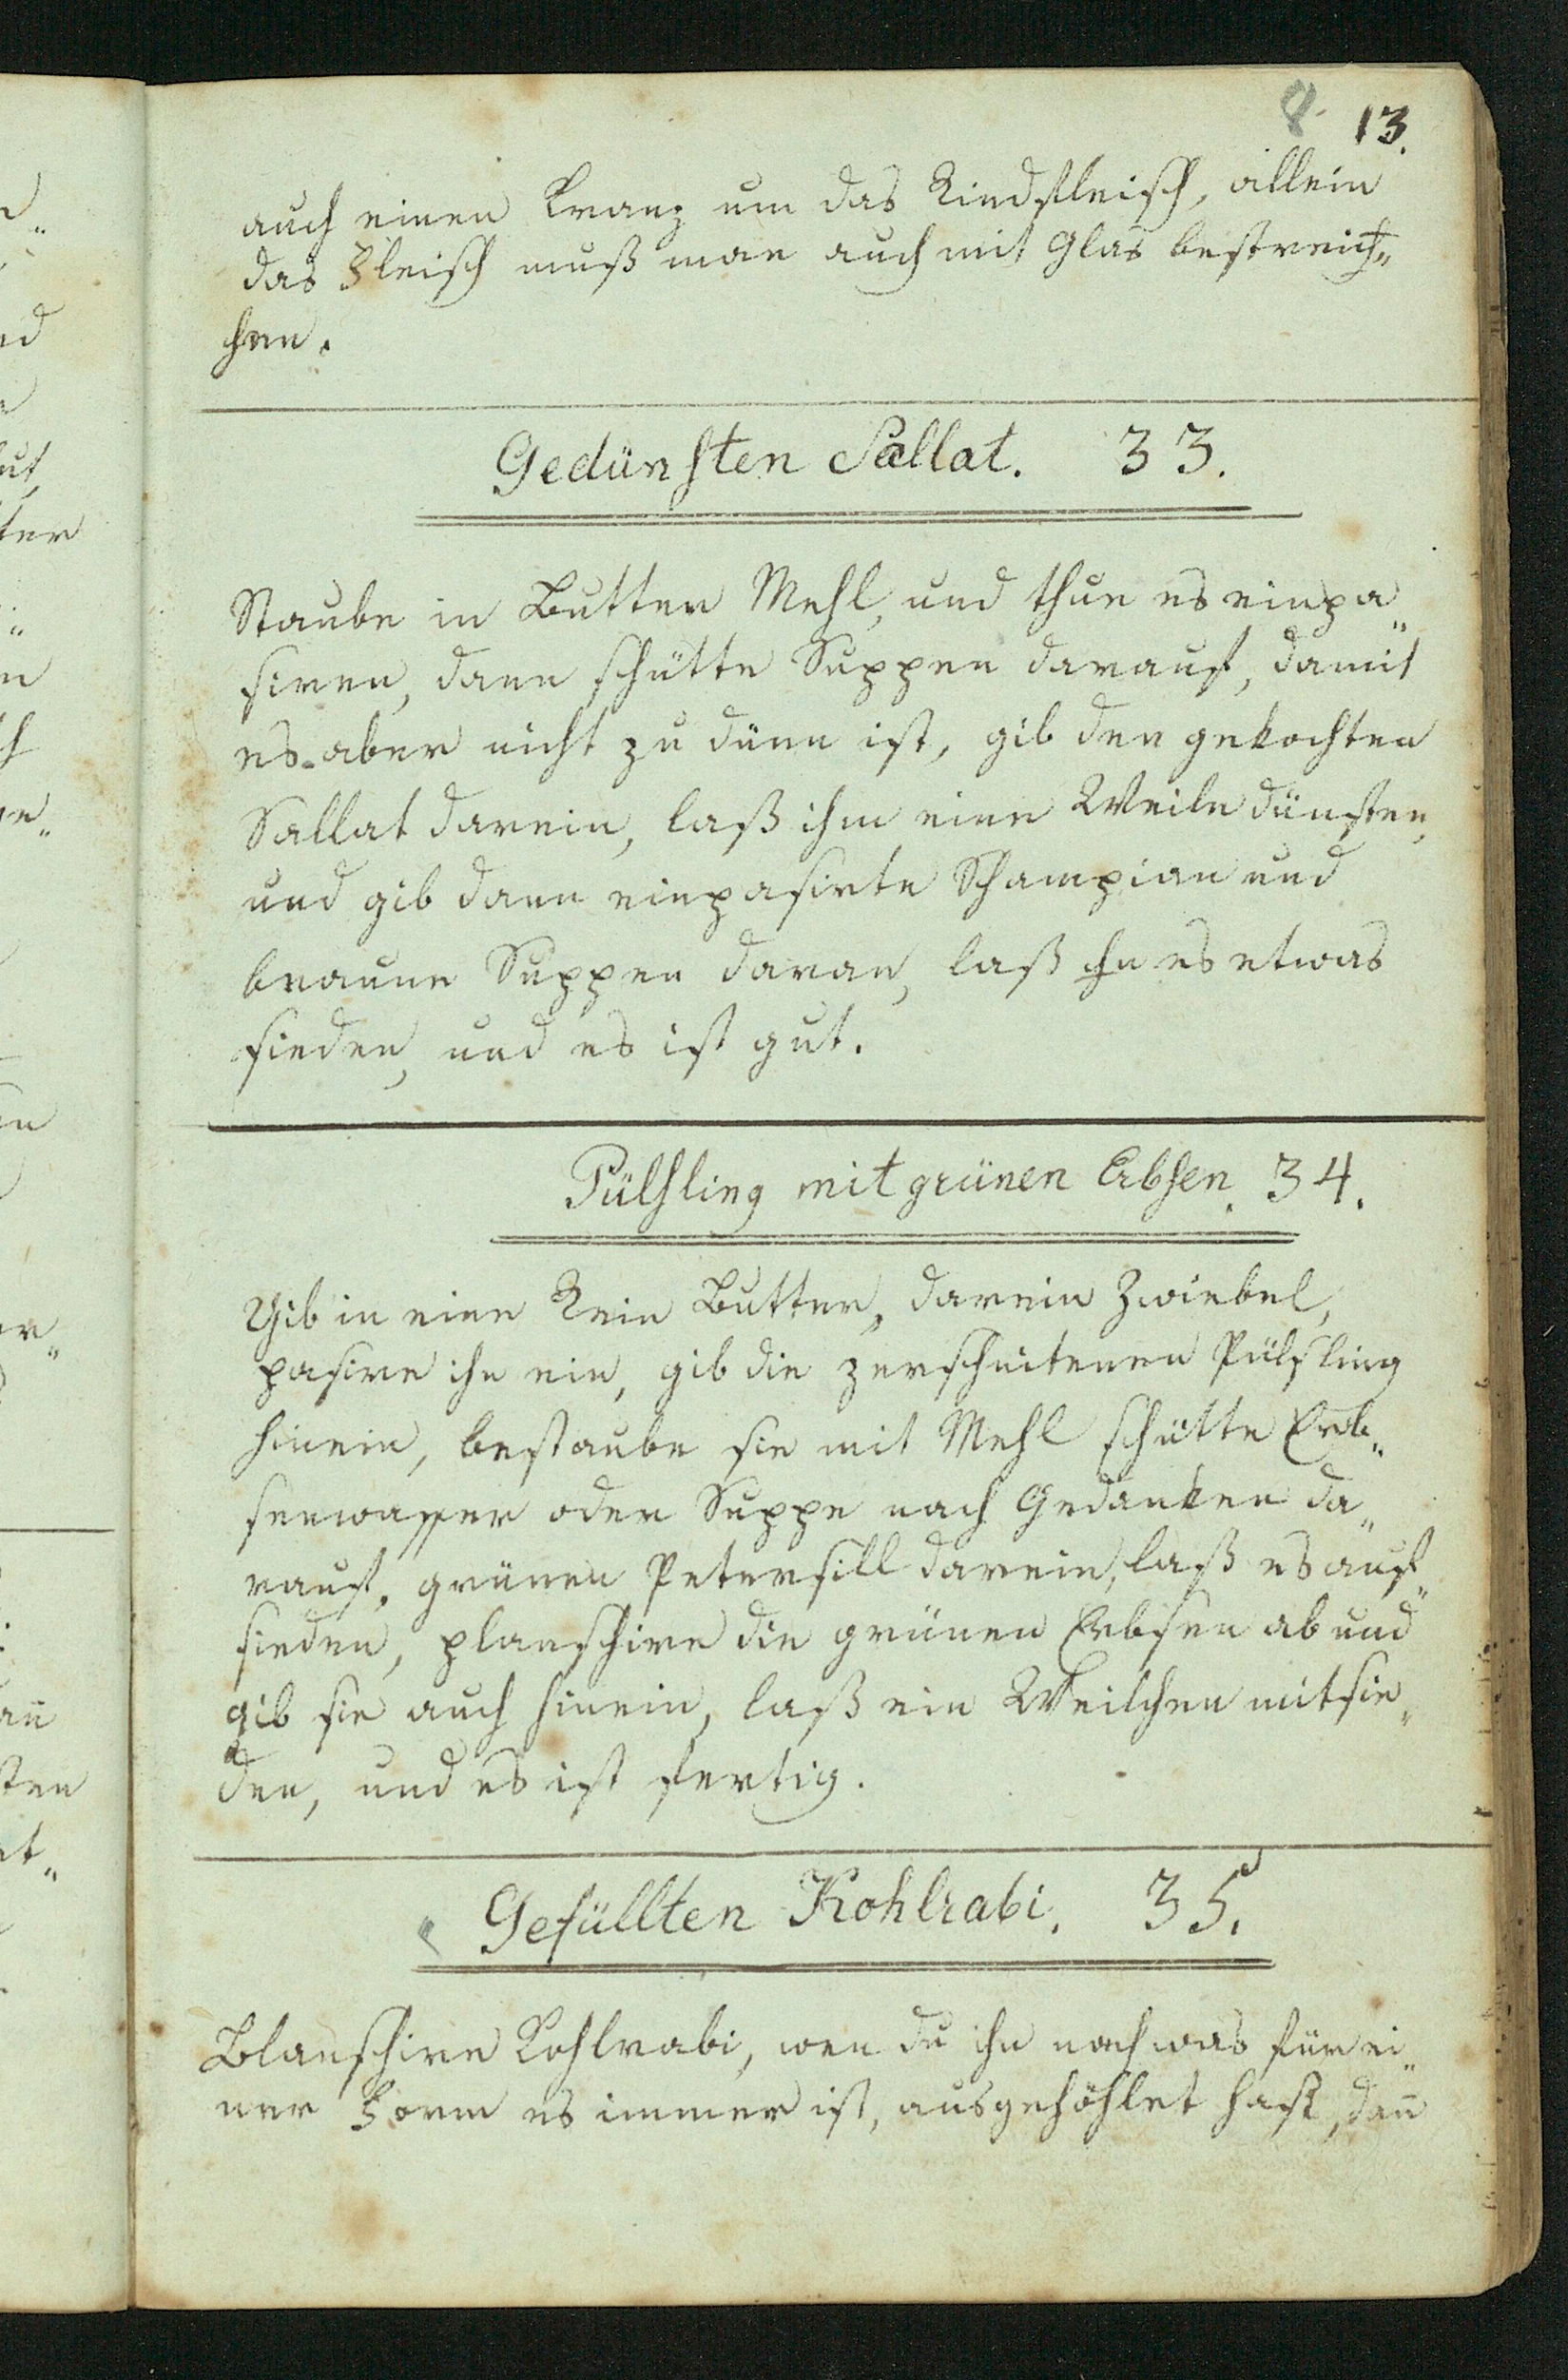 8. 13.
auch einen Kranz um das Rindfleisch, allein
das Fleisch muß man auch mit Glas bestreich„
chen.
Gedünsten Sallat. 33.
Staube in Butter Mehl, und thue es einpa„
siren, dann schütte Suppen darauf, damit
es aber nicht zu dünn ist, gib den gekochten
Sallat darein, laß ihm eine Weile dünsten,
und gib dann einpasirte Schampian und
braune Suppen daran, laß ihn es etwas
sieden, und es ist gut.
Pülsling mit grünen Erbsen. 34.
Gib in eine Rein Butter, darein Zwiebel,
pasire ihn ein, gib die zerschnitenen Pülsling
hinein, bestaube sie mit Mehl schütte Erb„
senwasser oder Suppe nach Gedanken da„
rauf, grünen Petersill darein, laß es auf„
sieden, planschire die grünen Erbsen ab und
gib sie auch hinein, laß ein Weilchen mitsie„
den, und es ist fertig.
Gefüllten Kohlrabi. 35.
Blanschire Kohlrabi, wen du ihn nach was für ei„
ner Form es immer ist, ausgehöhlet hast, dan̄